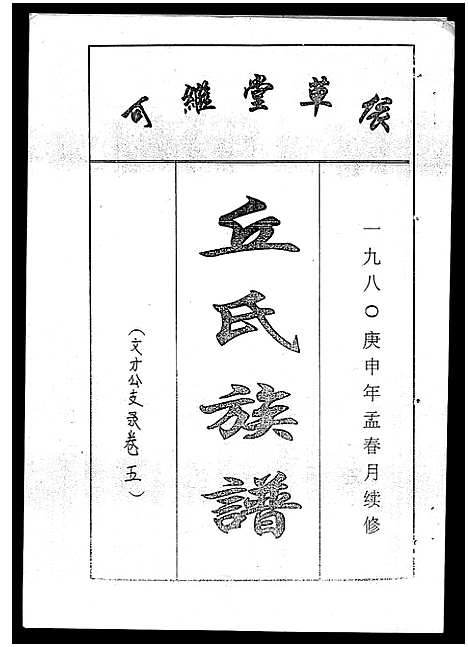 草堂維可
一九八〇庚申年孟春月续修
丘氏族譜
（文才公支录卷五）